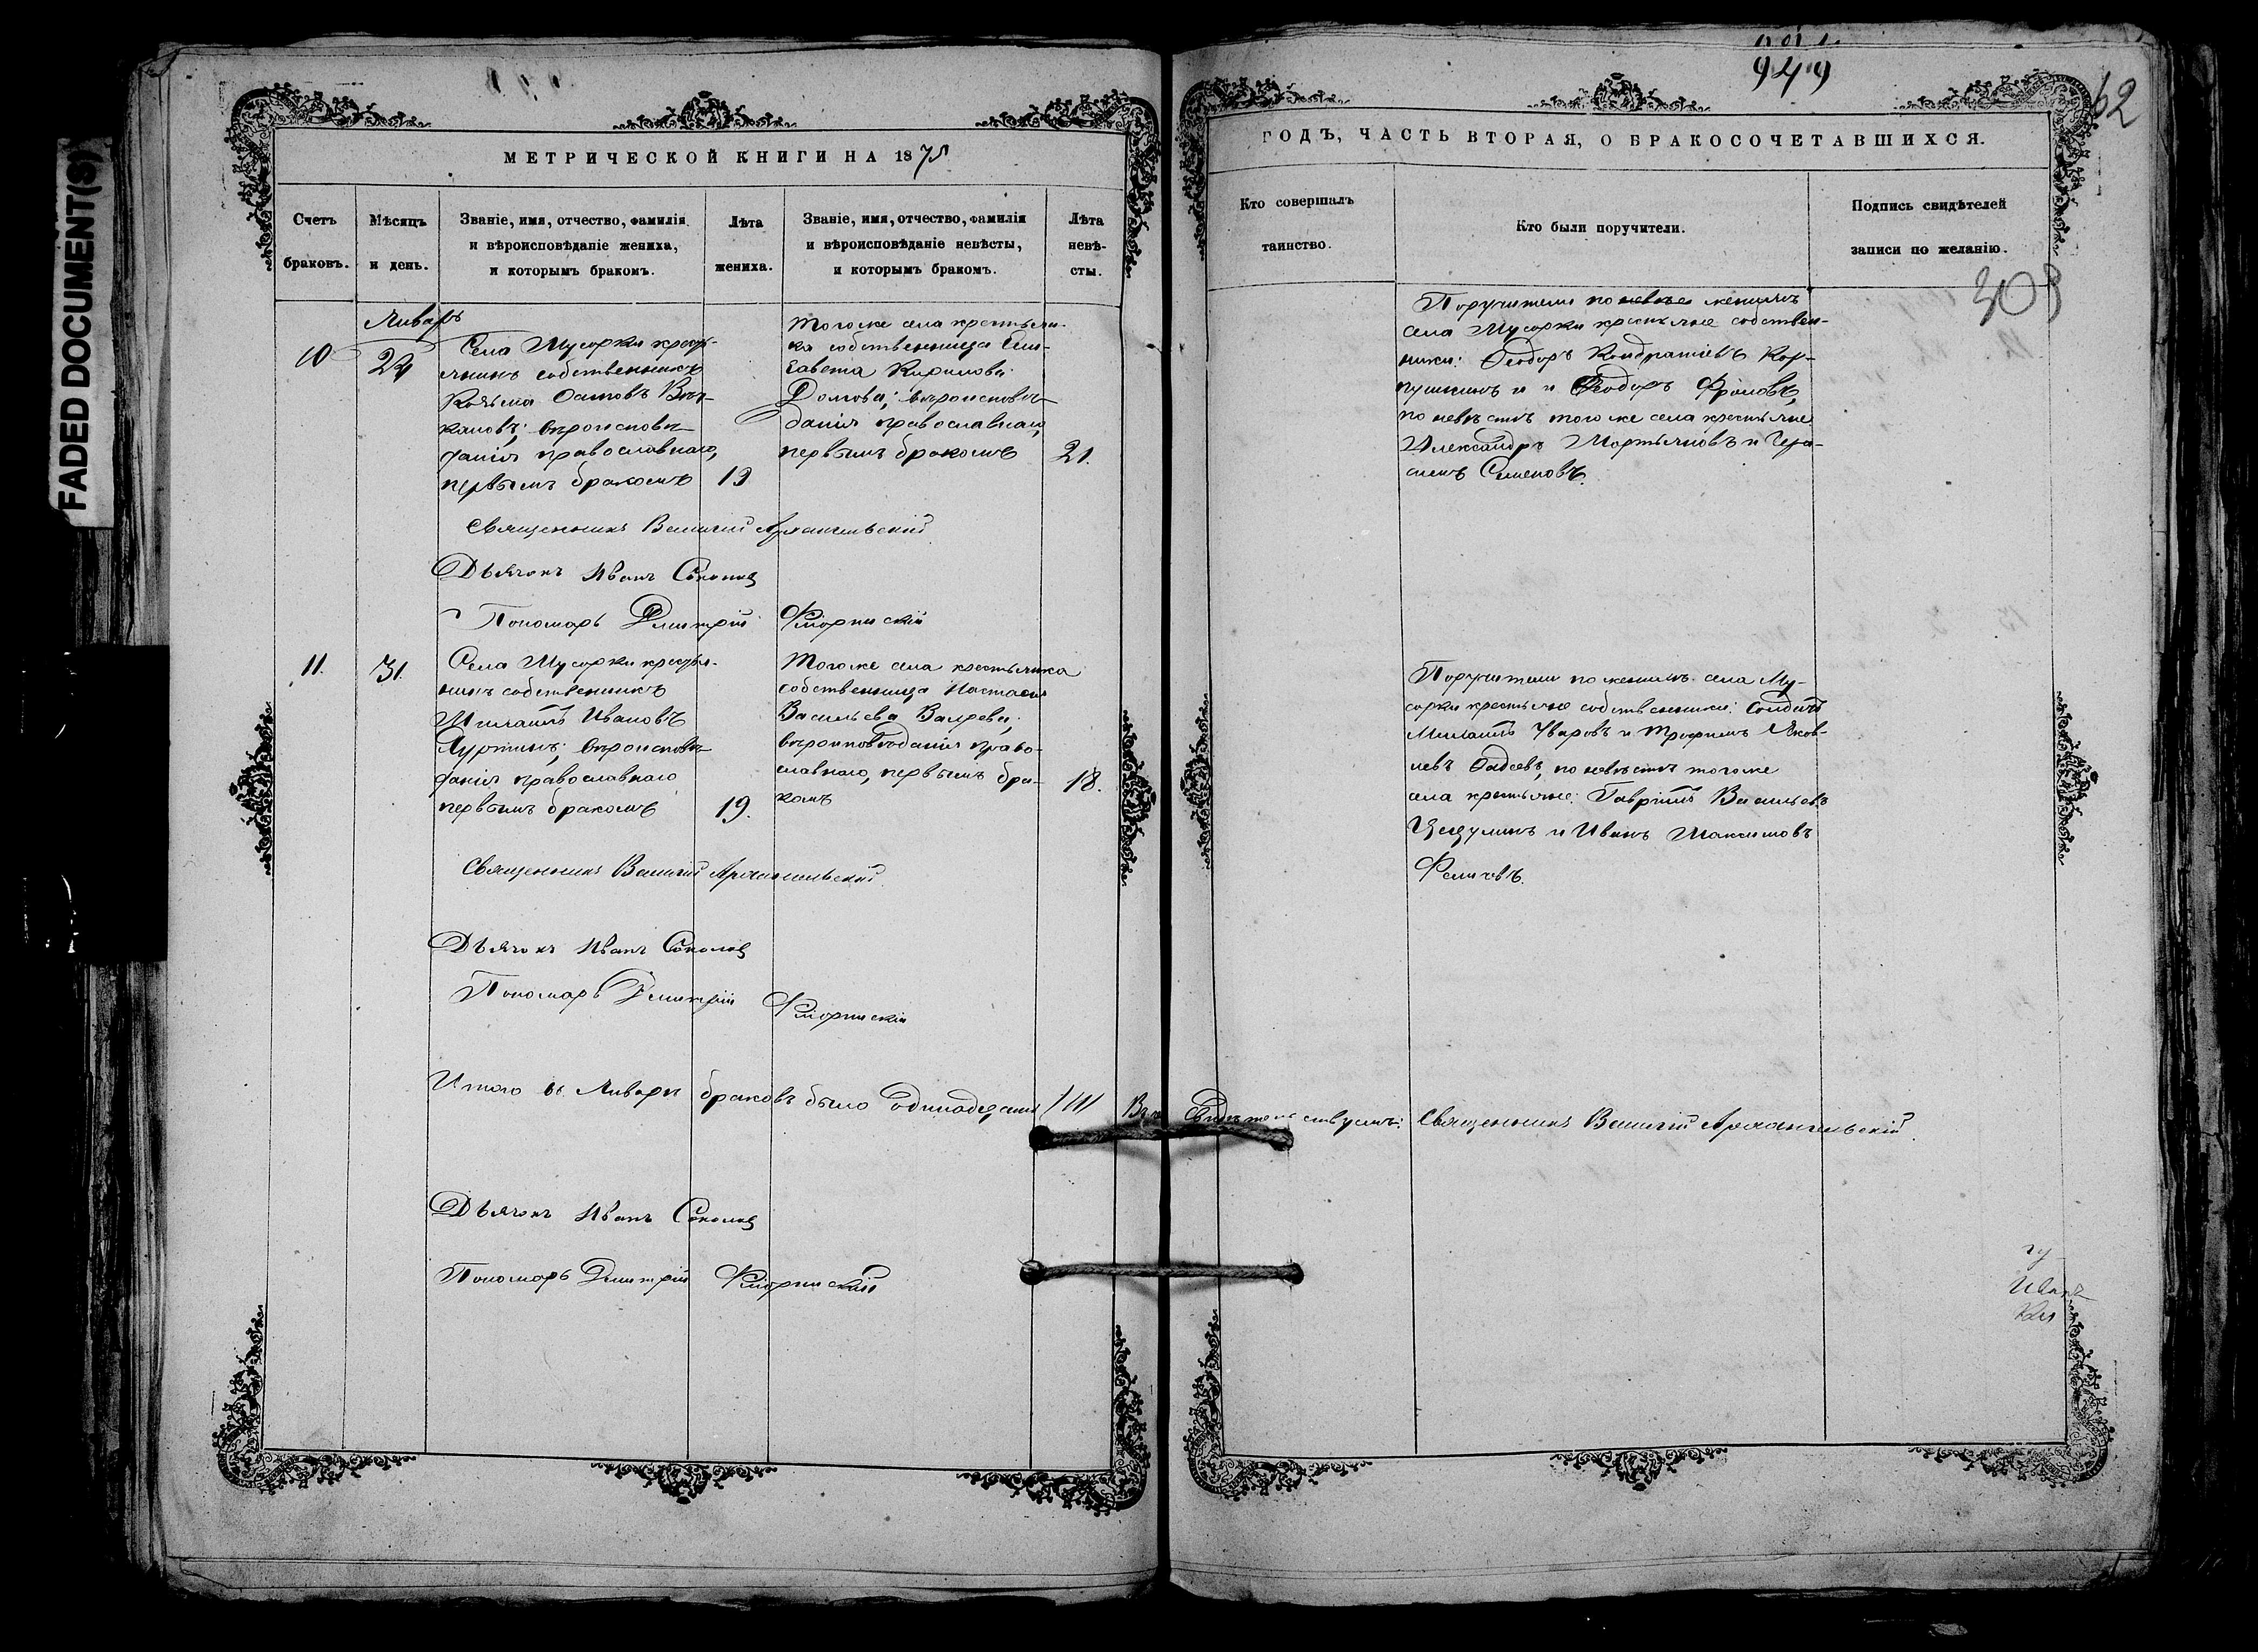 FADED DOCUMENT(S)
МЕТРИЧЕСКОЙ КНИГИ НА 1875
Счетъ браковъ.
Мѣсяцъ и день.
Званіе, имя, отчество, фамилія
и вѣроисповѣданіе жениха,
и которымъ бракомъ.
Лѣта жениха.
Званіе, имя, отчество, фамилія
и вѣроисповѣданіе невѣсты,
и которымъ бракомъ.
Лѣта невѣ-
сты.
Январь
10
29
Села Мусорки кресть-
янинъ собственникъ
Козьма
вѣроисповѣ-
данія православнаго,
первымъ бракомъ
19
Тогоже села крестьян-
ка собственница Ели-
завета Кирилова
Домова; вѣроисповѣ-
данія православнаго,
первымъ бракомъ
21.
Священникъ Василій Архангельскій
Дьячокъ Иванъ Соколовъ
Пономарь Дмитрій Фіоринскій
11.
31.
Села Мусорки крестья-
нинъ собственникъ
Михаилъ Ивановъ
вѣроисповѣ-
данія православнаго
первымъ бракомъ
19.
Тогоже села крестьянка
собственница Настасія
Васильева
вѣроисповѣданія право-
славнаго, первымъ бра-
комъ
18.
Священникъ Василій Архангельскій
Дьячокъ Иванъ Соколовъ
Пономарь Дмитрій Фіоринскій
Итого въ Январѣ браковъ было одинадцать /11/
свидѣтельствуемъ: Священникъ Василій Архангельскій
Дьячокъ Иванъ Соколовъ
Пономарь Дмитрій Фіоринскій
949
62
ГОДЪ, ЧАСТЬ ВТОРАЯ, О БРАКОСОЧЕТАВШИХСЯ.
Кто совершалъ
таинство.
Кто были поручители.
Подпись свидѣтелей
записи по желанію.
Поручители по женихѣ
села Мусорки крестьяне собствен-
ники: Ѳеодоръ Кондратіевъ Кор-
пушкинъ и Ѳеодоръ Фроловъ,
по невѣстѣ тогоже села крестьяне
Александръ Мартьяновъ и Гера-
симъ Семеновъ.
Поручители по женихѣ села Му-
сорки крестьяне собственники: Солдатъ
Михаилъ Уваровъ и Трофимъ Яков-
левъ Фадеевъ, по невѣстѣ тогоже
села крестьяне: Гавріилъ Васильевъ
и Иванъ Максимовъ